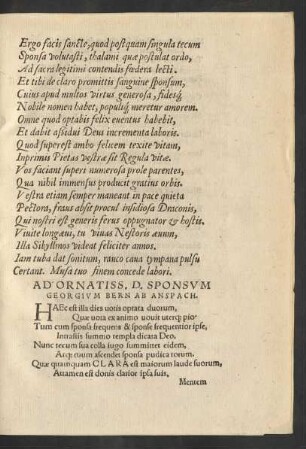 Ergo facis sancte, quod postquam singula tecum
Sponsa volutasti, thalami quæ postulat ordo,
Ad sacra legitimi contendis fœdera lecti.
Et tibi de claro promittis sanguine sponsum,
Cuius apud multos virtus generosa, fidesq́;
Nobile nomen habet, populiq́; meretur amorem.
Omne quod optabis felix euentus habebit,
Et dabit assidui Deus incrementa laboris.
Quod superest ambo felicem texite vitam,
Inprimis Pietas vestræ sit Regula vitæ.
Vos faciant supere numerosa prole parentes,
Qua nihil immensus producit gratius orbis.
Vestra etiam semper maneant in pace quieta
Pectora, fraus absit procul insidiosa Draconis,
Qui nostri est generis ferus oppugnator & hostis.
Viuite longæui, tu viuas Nestoris æuum,
Illa Sibyllinos videat feliciter annos.
Iam tuba dat sonitum, rauco caua tympana pulsu
Certant. Musa tuo finem concede labori.
AD ORNATISS. D. SPONSVM
GEORGIVM BERN AB ANSPACH.
HAEc est illa dies uotis optata duorum,
Quæ uota ex animo uouit uterq; pio.
Tum cum sponsa frequens & sponse frequentior ipse,
Intrastis summo templa dicata Deo.
Nunc tecum sua colla iugo summittet eidem,
Atq; tuum ascendet sponsa pudica torum.
Quæ quamquam CLARA est maiorum laude suorum,
Attamen est donis clarior ipsa suis.
Mentem